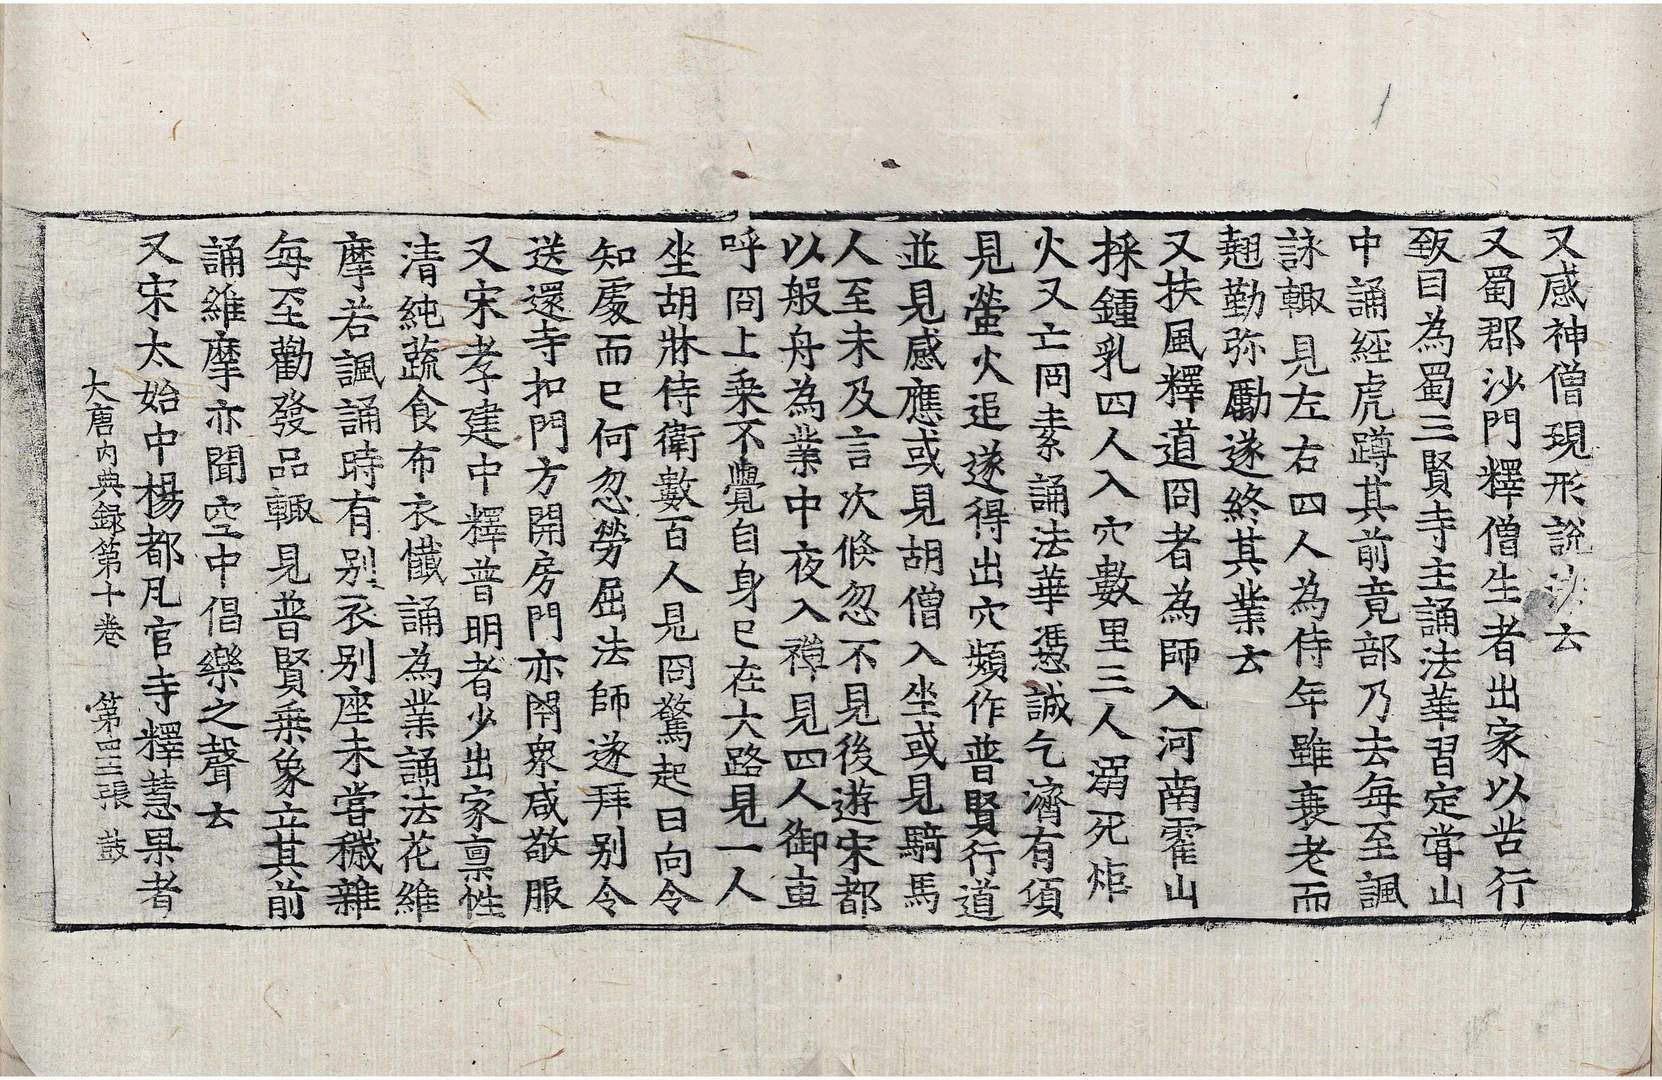 又感神僧現形說法云
又蜀郡沙門釋僧生者出家以苦行
致目為蜀三賢寺主誦法華習定甞山
中誦經虎蹲其前竟部乃去每至諷
詠輙見左右四人為侍年雖衰老而
翹勤弥勵遂終其業云
又扶風釋道冏者為師入河南霍山
採鍾乳四人入穴數里三人溺死炬
火又亡冏素誦法華憑誠乞濟有須
見螢火追遂得出穴頻作普賢行道
並見感應或見胡僧入坐或見騎馬
人至未及言次倏忽不見後遊宋都
以般舟為業中夜入禪見四人御車
呼冏上乗不覺自身已在大路見一人
坐胡牀侍衛數百人見冏驚起曰向令
知處而已何忽勞屈法師遂拜別令
送還寺扣門方開房門亦閇衆咸敬服
又宋孝建中釋普明者少出家禀性
清純蔬食布衣懺誦為業誦法花維
摩若諷誦時有別衣別座未甞穢雜
每至勸發品輙見普賢乗象立其前
誦維摩亦聞空中倡樂之聲云
又宋太始中楊都凡官寺釋慧果者
大唐内典録第十卷　第四三張　鼓